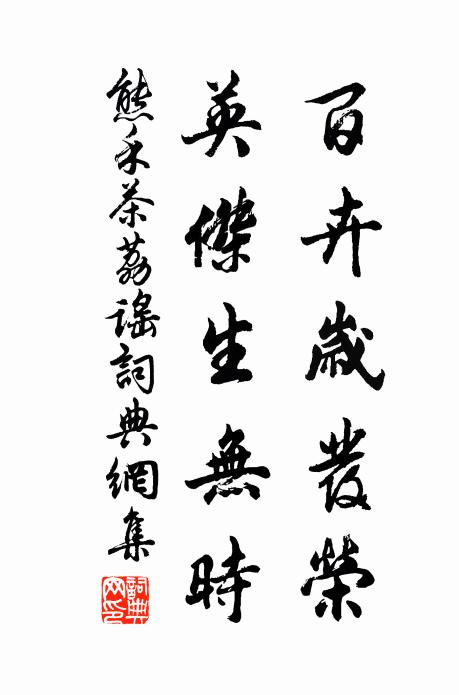 百卉歲發榮
英傑生無時
熊禾茶荔謠詞典網集
詞典網印